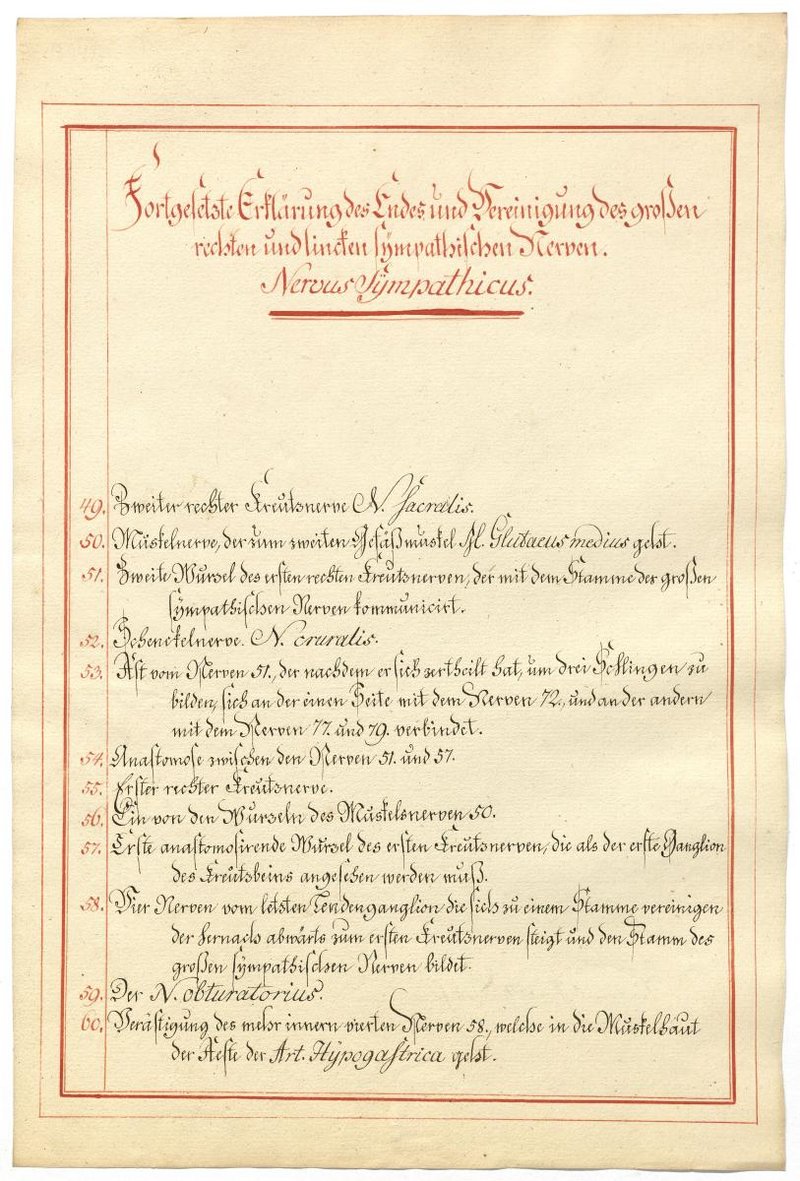 Fortgesetzte Erklärung des Endes und Vereinigung des großen
rechten und lincken sympathischen Nerven.
Nervus Sympathicus.
49. Zweiter rechter Kreutznerve N. Sacralis.
50. Muskelnerve, der zum zweiten Gesäßmuskel M. Glutaeus medius geht.
51. Zweite Wurzel des ersten rechten Kreutznerven, der mit dem Stamme der großen
sympathischen Nerven kommunicirt.
52. Schenckelnerve. N. cruralis.
53. Ast vom Nerven 51., der nachdem er sich zertheilt hat, um drei Schlingen zu
bilden, sich an der einen Seite mit dem Nerven 72., und an der andern
mit dem Nerven 77. und 79. verbindet.
54. Anastomose zwischen den Nerven 51. und 57.
55. Erster rechter Kreutznerve.
56. Ein von den Wurzeln des Muskelsnerven 50.
57. Erste anastomosirende Wurzel des ersten Kreutznerven, die als der erste Ganglion
des Kreutzbeins angesehen werden muß.
58. Vier Nerven vom letzten Lendenganglion die sich zu einem Stamme vereinigen
der hernach abwärts zum ersten Kreutznerven steigt und den Stamm des
großen sympathischen Nerven bildet.
59. Der N. obturatorius.
60. Verästigung des mehr innern vierten Nerven 58., welche in die Muskelhaut
der Aeste der Art. Hypogastrica geht.